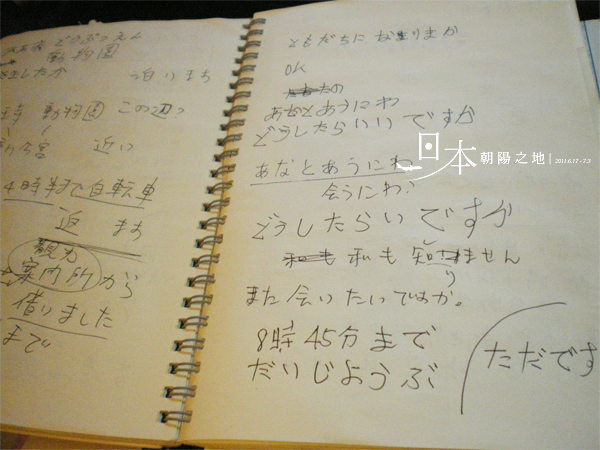 どうぶつえん
動物園
ましたか
泊りまち
時 動物園 この辺っ
今宮 近い
4時半で自転車
近 まち
観力
案内所から
借りました
まで
ともだちになまりまか
OK
あなとあうにわ
どうしたらいいですか
あなとあうにわ
会うにわ?
どうしたらいですか
私も 私も 知りません
また会いたいですか。
8時45分まで
だいじようぶ
ただです
日本 朝陽之地 2011.6.17-7.3